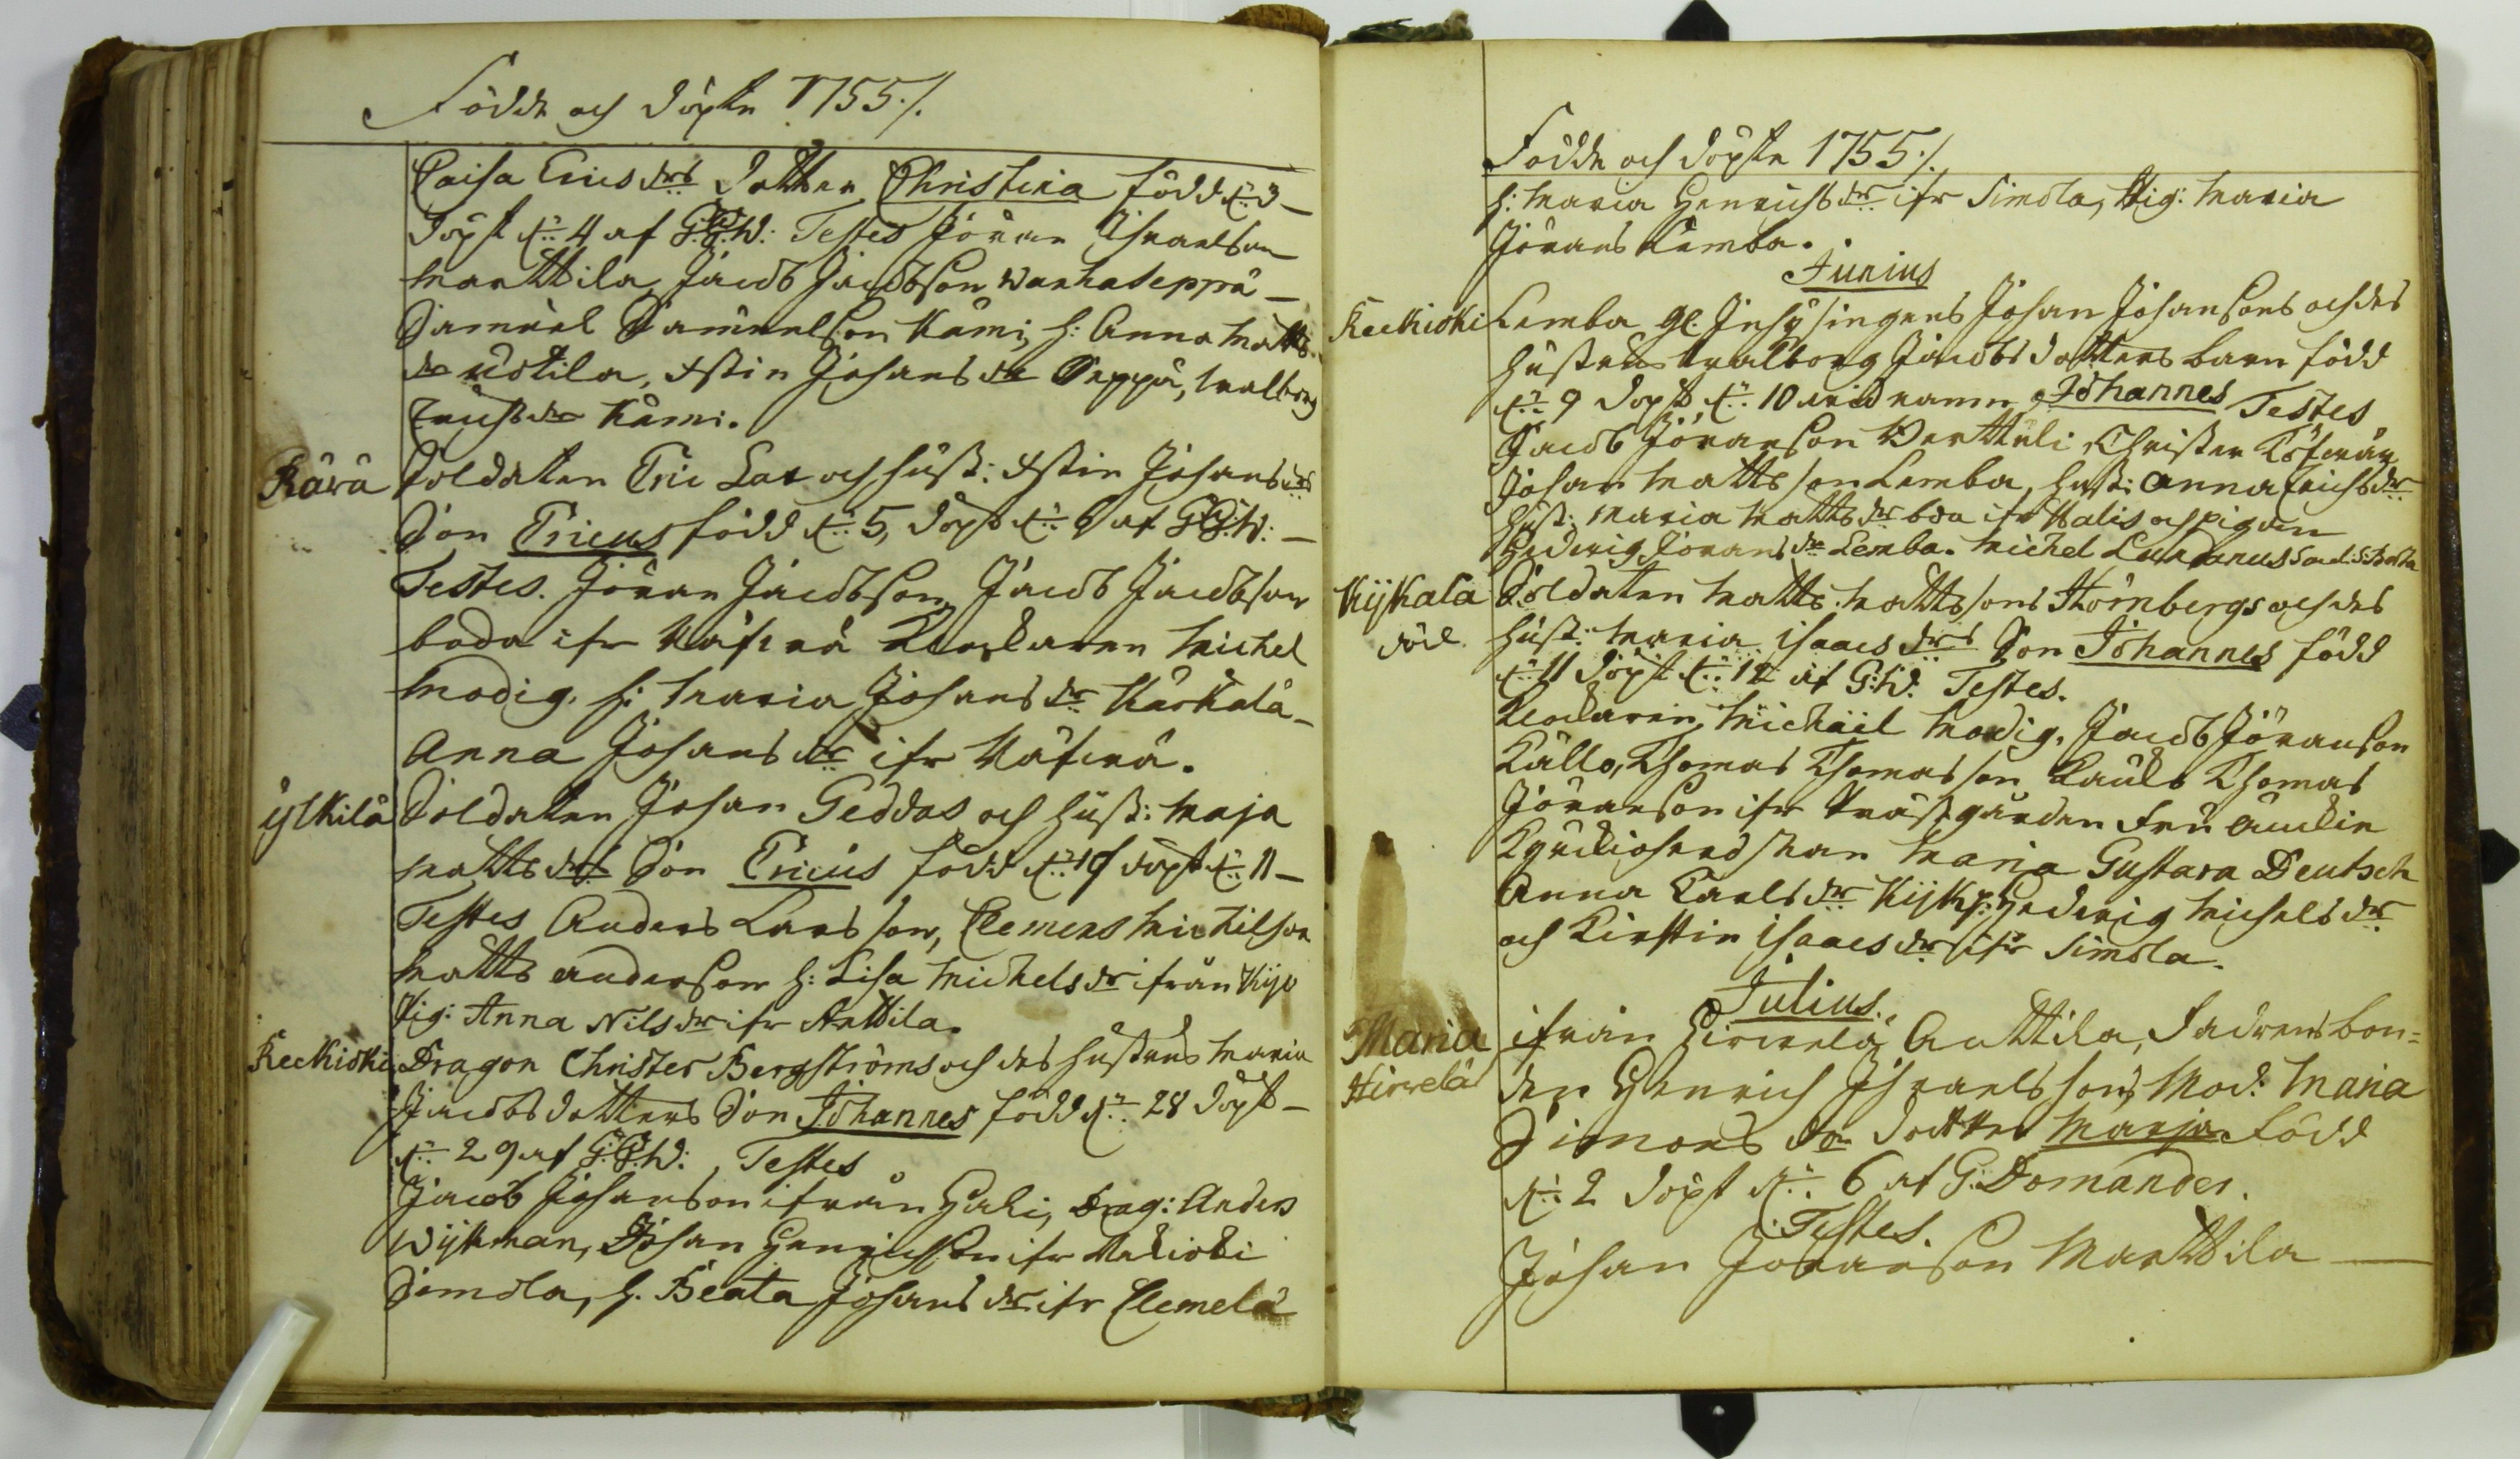 Födde och döpte 1755./.
Caisa Ericsdrs dotter Christina född d. 3
döpt d. 4 af G:G:W: Testes Jöran Israelson
Marttila, Jacob Jacobson Wanhaseppä
Samuel Samuelson Kämi, h: Anna Matts
dr Uotila, Stin Johans dr Seppä, Walborg
Erichs dr Kämi.
Rärä Soldaten Eric Lax och hust: Stin Johansdrs
Son Ericus född d. 5, döpt d. 6 af G:G:W:
Testes. Jöran Jacobson Jacob Jacobson
boda ifr Klockaren Michel
Modig. h: Maria Johans dr Kärkälä
Anna Johans dr ifr
Ylkilä Soldaten Johan Geddas och hust: Maja
Mattsdrs Son Ericus född d. 10 döpt d. 11
Testes Anders Larsson, Clemens Michilson
Matts Anderson h: Lisa Michels dr ifrån Kyl
Pig: Anna Nils dr ifr Anttila.
Keckioki Dragon Christer Bergströms och des hustrus Maria
Jacobs dotters Son Johannes född d. 28 döpt
d. 29 af G:G:W:, Testes
Jacob Johanson ifrån Hali, Drag: Anders
Wijkman, Johan Henrichson ifr
Simola, h. Beata Johans dr ifr Clemelä
Födde och döpte 1755./.
h: Maria Henrichs dr ifr Simola, Pig: Maria
Jörans Lemba.
Junius
Keckioki Lemba gl. Inhysingens Johan Johansons och des
hustrus Walborg Jacobs dotters barn född
d. 9 döpt d. 10 wid namn Johannes Testes
Jacob Jöranson Werttuli, Christer
Johan Matts son Lemba, hust: Anna Erichs dr
Hust: Maria Matts dr boa ifr Halis och pigan
Hedevig Jörans dr Lemba. Michel
Kijkala Soldaten Matts Mattsons Stormbergs och des
död. hust: Maria Isaacs drs Son Johannes född
d. 11 döpt d. 12 af G:W: Testes.
Klockaren Michäil Modig, Jacob Jöranson
Källo, Thomas Thomasson Thomas
Jöranson ifr Prästgården Fru
Maria Gustava Deutsch
Anna Carls dr Hedevig Michels dr
och Kirstin Isaacs dr ifr Simola.
Julius.
Maria ifrån Hirvelä Anttila, Fadren bon=
Hirvelä den Henrich Israelsson, Mod: Maria
Simons dr dotter Marja född
d. 2 döpt d. 6 af G: Domander.
Testes.
Johan Jöranson Marttila